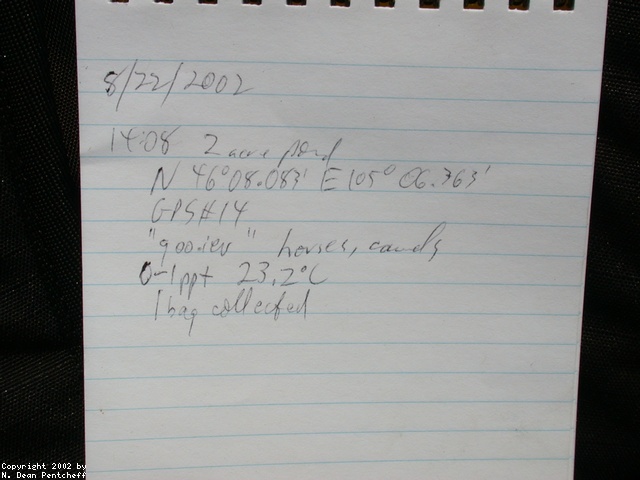 8/22/2002
14:08 2 acre pond
N 46°08.083' E 105° 06.363'
GPS#14
"gooier" horses, camels
0-1ppt 23.2°C
1 bag collected
Copyright 2002 by
N. Dean Pentcheff